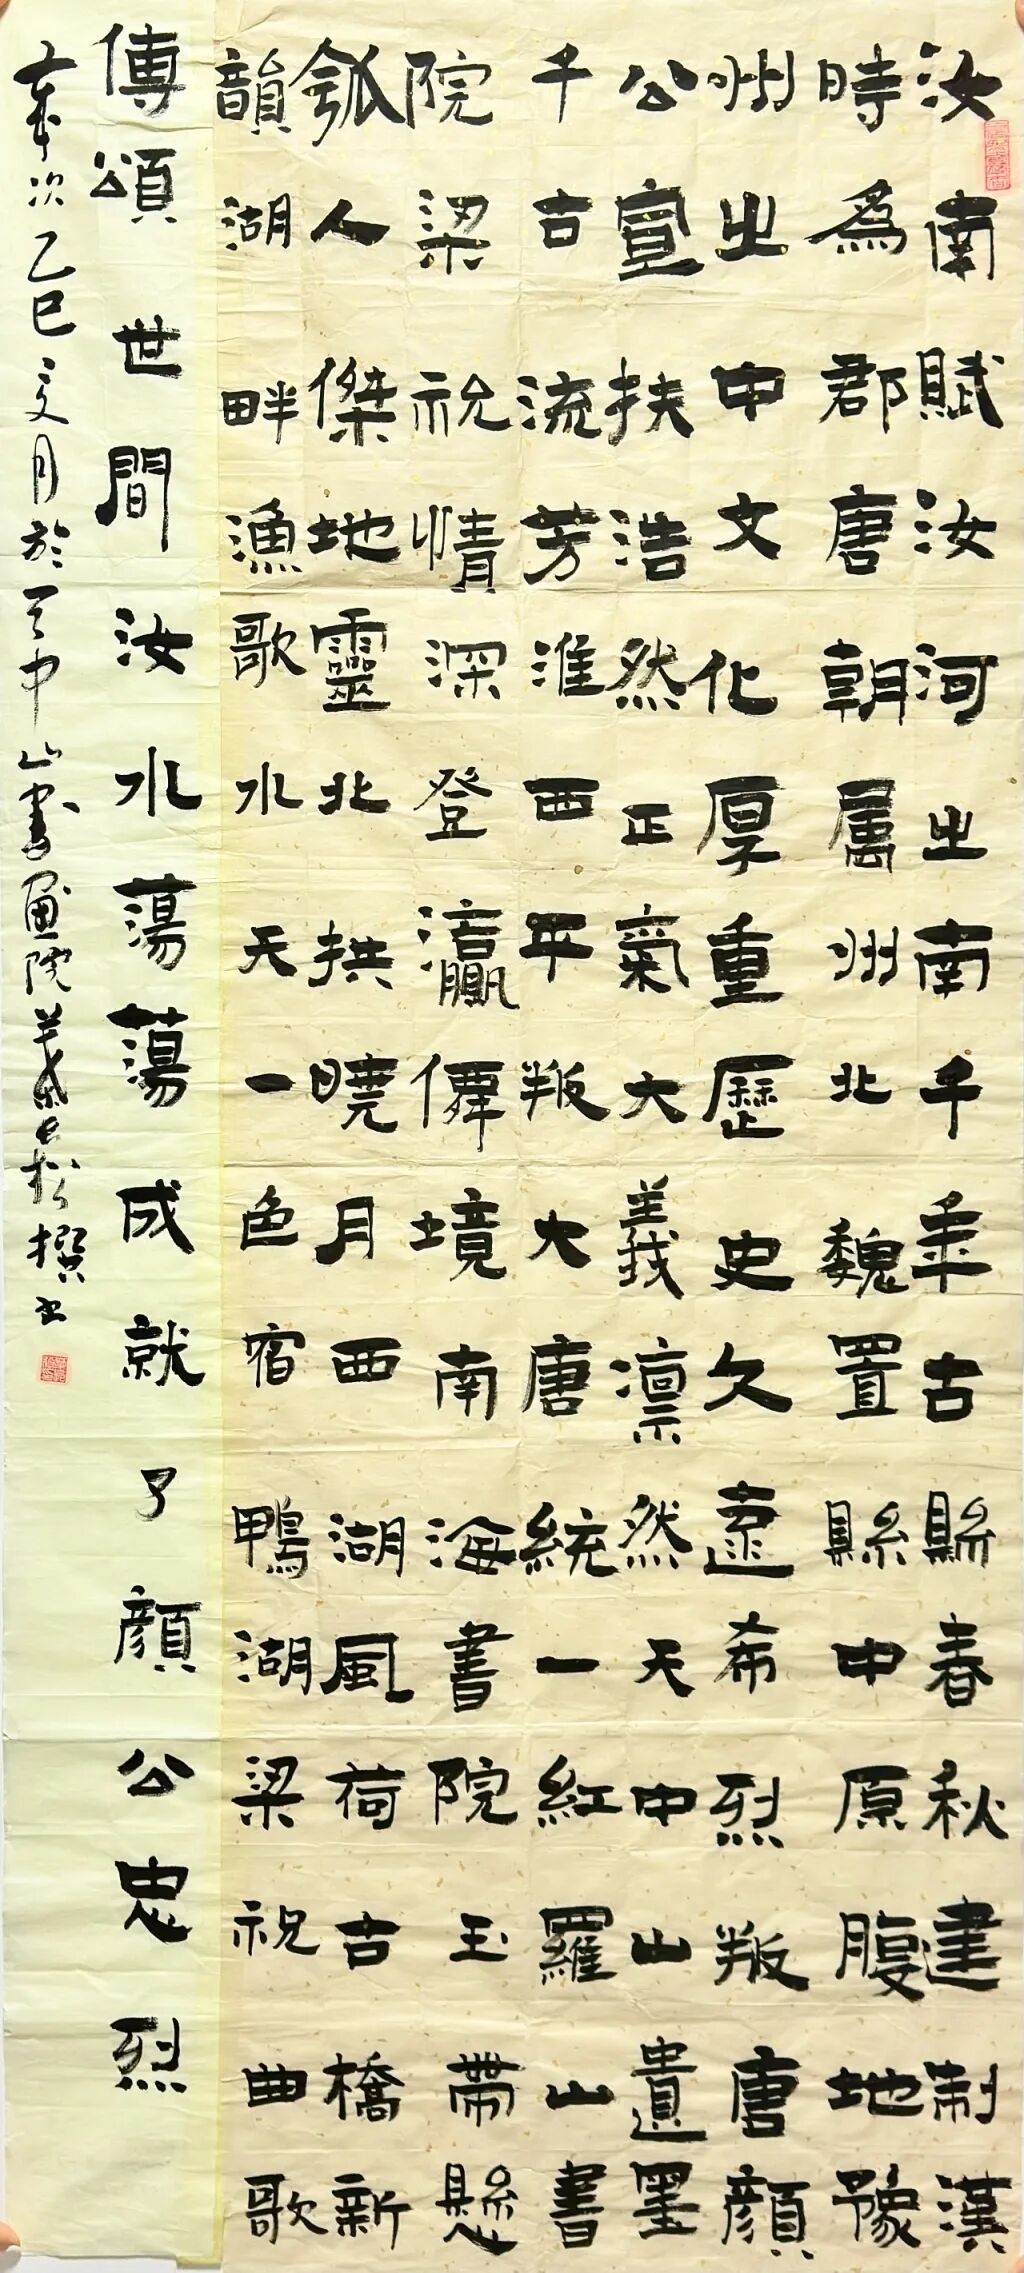 汝南賦汝河出南千年古縣春秋建制漢
時為郡唐朝屬州北魏置縣中原腹地豫
州出中文化厚重歷史久遠希烈叛唐顏
公宣扶浩然正氣大義凛然天中山遺墨
千古流芳淮西平叛大唐統一紅羅山書
院梁祝情深登瀛僊境南海書院玉帶懸
瓠人傑地靈北拱曉月西湖風荷古橋新
韻湖畔漁歌水天一色宿鴨湖梁祝曲歌
傳頌世間汝水蕩蕩成就了顏公忠烈
歲次乙巳文月於天中山書畫院 松撰書